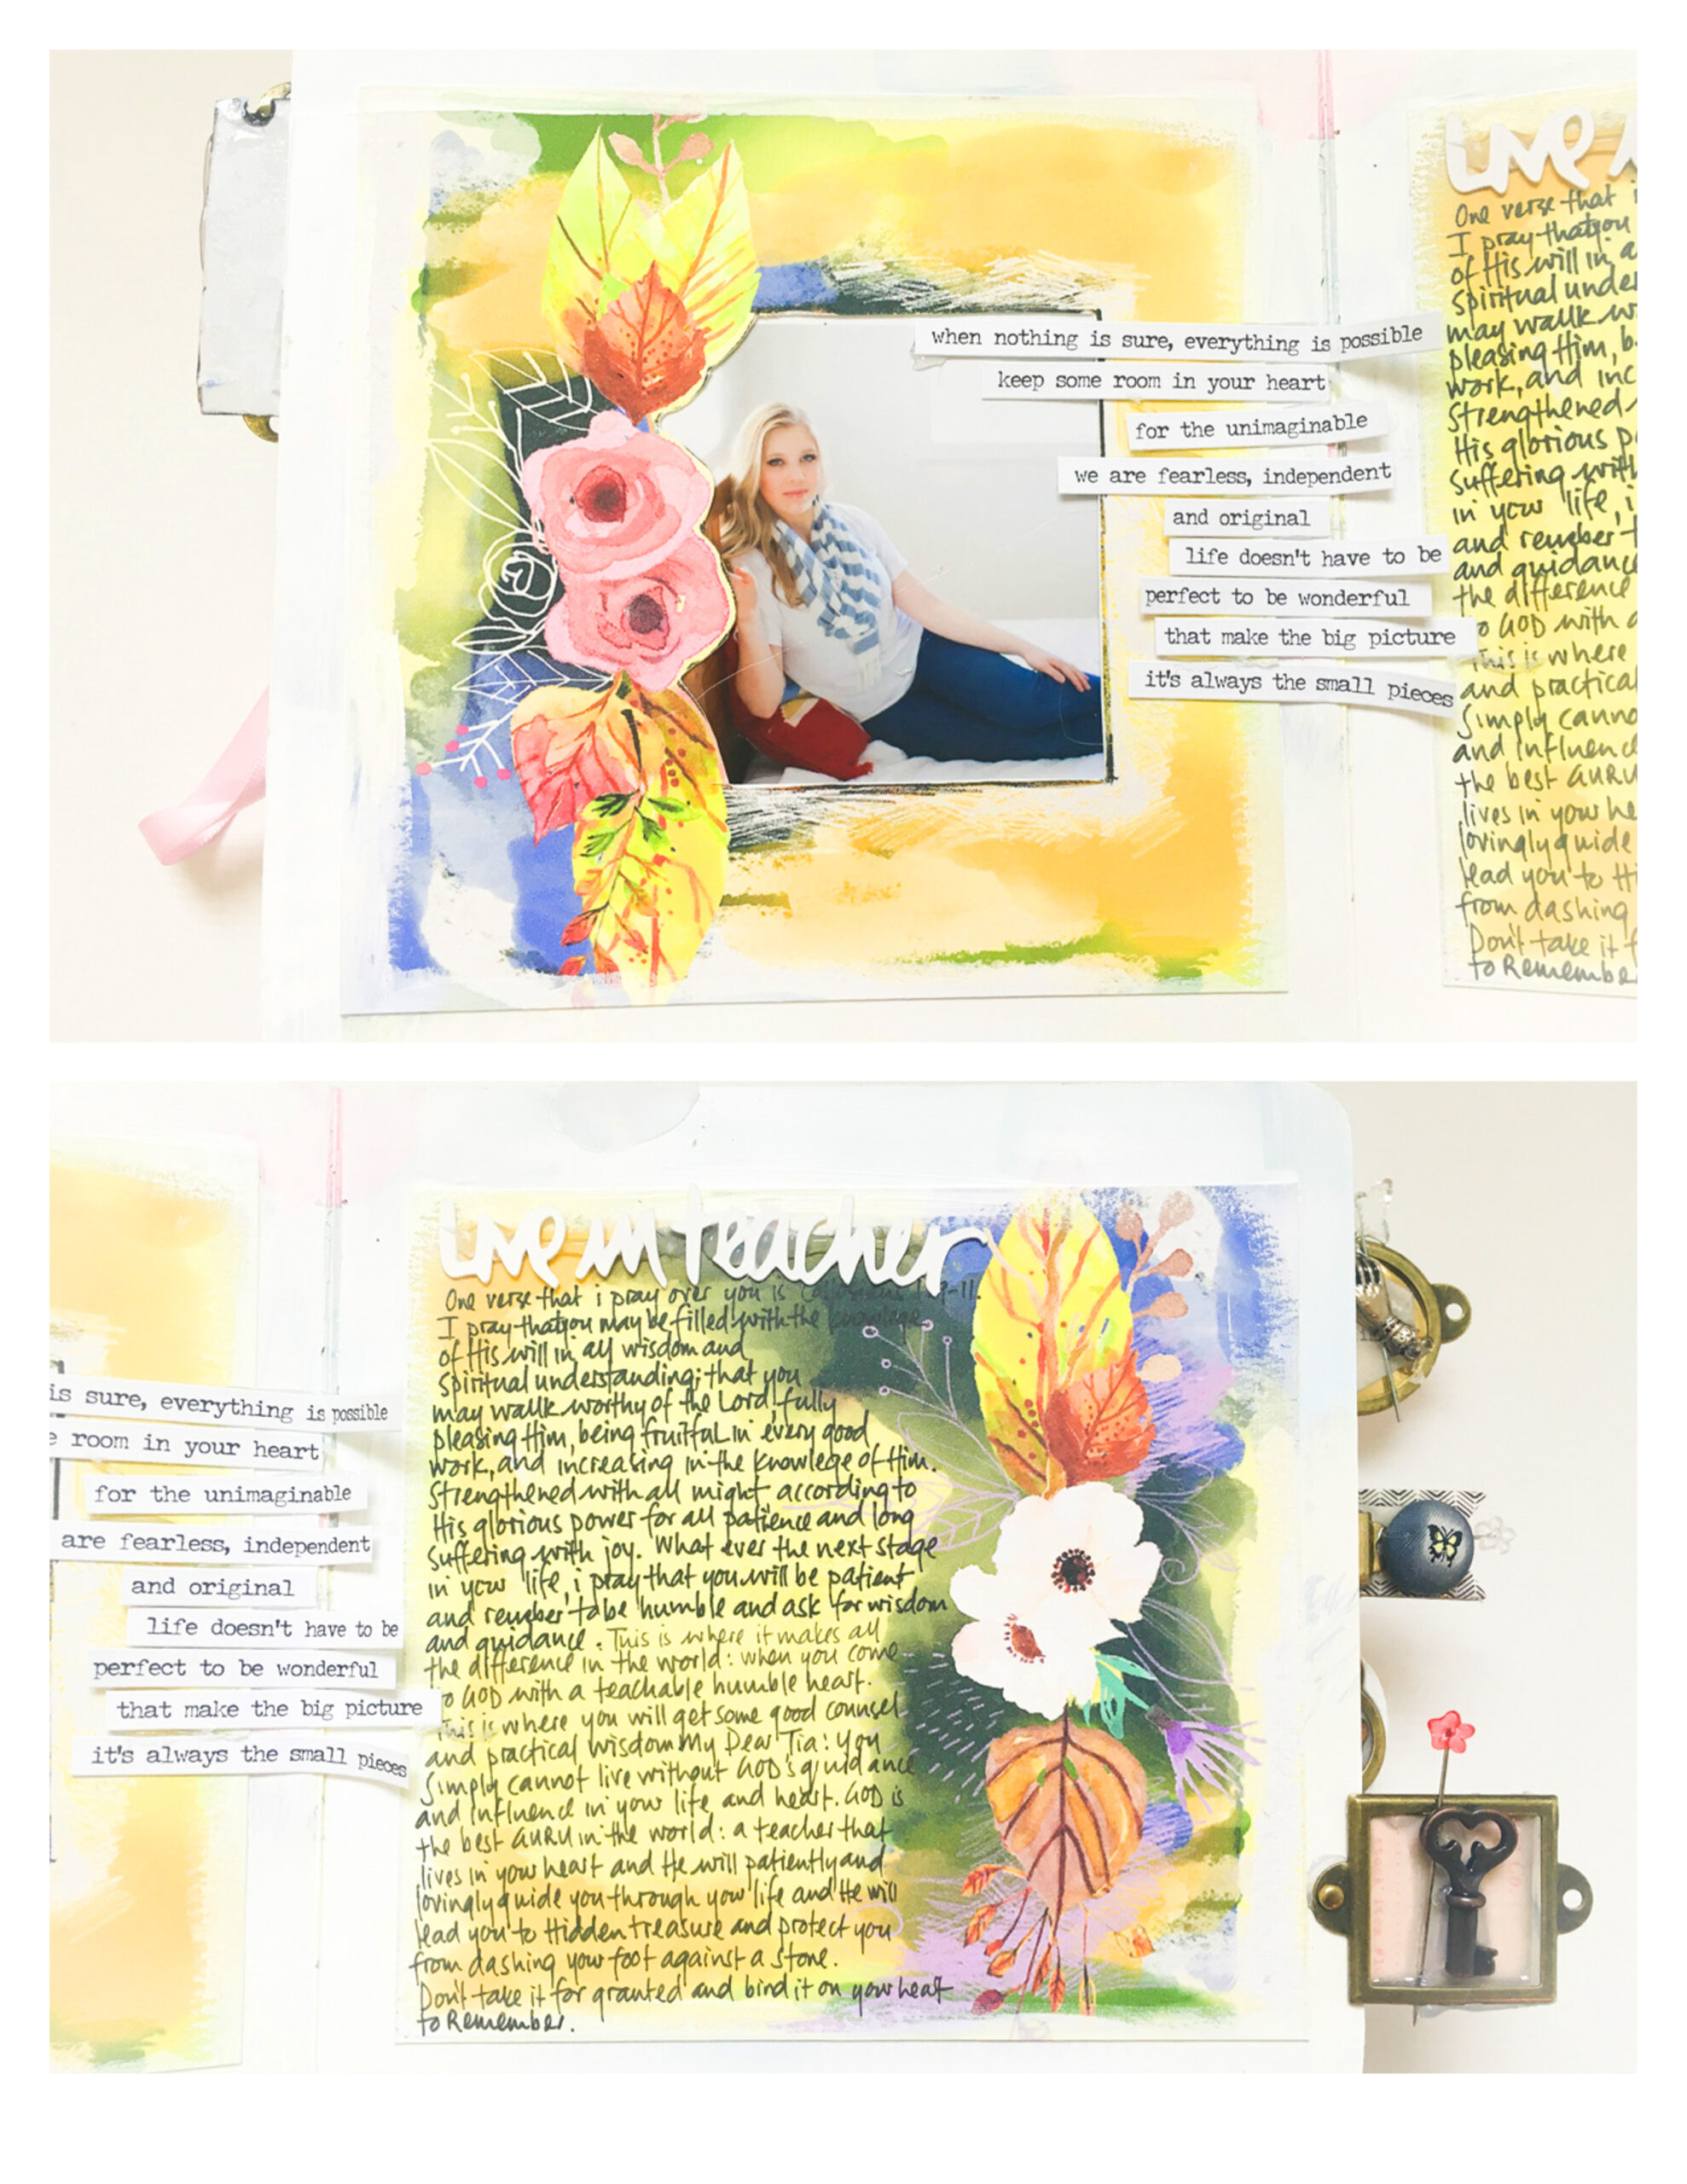 when nothing is sure, everything is possible
keep some room in your heart
for the unimaginable
we are fearless, independent
and original
life doesn't have to be
perfect to be wonderful
that make the big picture
it's always the small pieces
Live
One verse that i
I pray thatyou
of His will in a
spiritual under
may walk w
pleasing Him, b
work, and inc
Strengthened
His glorious p
suffering with
in your life, i
and remeber t
and guidance
the difference
to GOD with a
This is where
and practical
Simply canno
and influence
the best GURU
lives in your he
lovingly guide
lead you to Hi
from dashing
Don't take it f
to Remember
is sure, everything is possible
e room in your heart
for the unimaginable
are fearless, independent
and original
life doesn't have to be
perfect to be wonderful
that make the big picture
it's always the small pieces
Live in teacher
One verse that i pray over you is Collosians 1:9-11.
I pray thatyou may be filled with the knowlege
of His will in all wisdom and
spiritual understanding; that you
may walk worthy of the Lord, fully
pleasing Him, being fruitful in every good
work, and increasing in the knowlege of Him.
Strengthened with all might according to
His glorious power for all patience and long
suffering with joy. What ever the next stage
in your life, i pray that you will be patient
and remeber to be humble and ask for wisdom
and guidance. This is where it makes all
the difference in the world: when you come
to GOD with a teachable humble heart.
This is where you will get some good counsel
and practical wisdom My Dear Tia: You
Simply cannot live without GOD's guidance
and influence in your life and heart. GOD is
the best GURU in the world: a teacher that
lives in your heart and He will patiently and
lovingly guide you through your life and He will
lead you to Hidden treasure and protect you
from dashing your foot against a stone.
Don't take it for granted and bind it on your heart
to Remember.